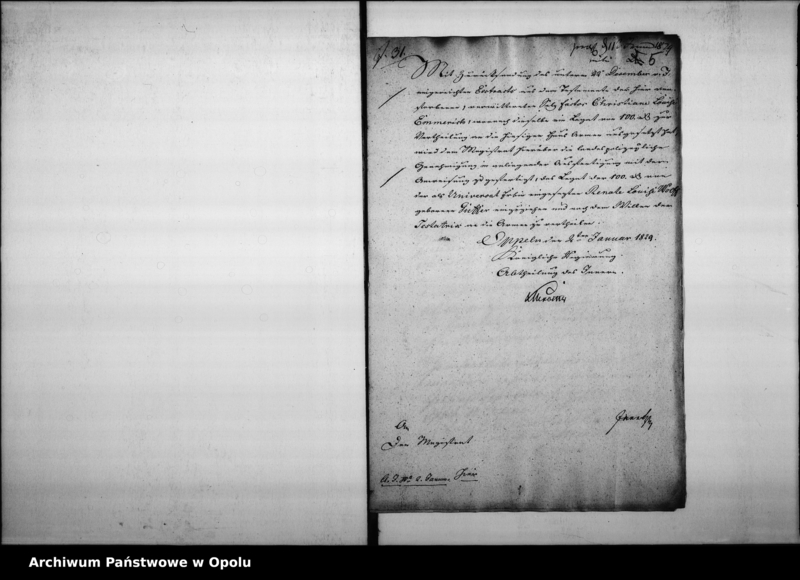 J. 31.
5
Mit Zurücksendung des unterm December v. J.
eingereichten Extracts aus dem Testamente des hier ver-
storbenen, verwittweten Salz Factor Christiane
Emmerich, wonach dieselbe ein Legat von 100 zur
Vertheilung an die hiesigen Haus Armen ausgesetzt hat,
wird dem Magistrat hierüber die landespolizeyliche
Genehmigung in anliegender Ausfertigung mit der
Anweisung zugefertigt, das Legat der 100 von
der als Universal Erbin eingesetzten Renate
geborene einzuziehen und nach dem Willen der
Testatrix an die Armen zu vertheilen.
Oppeln den 2ten Januar 1829.
Königliche Regierung.
Abtheilung des Innern.
An
Den Magistrat
Archiwum Państwowe w Opolu